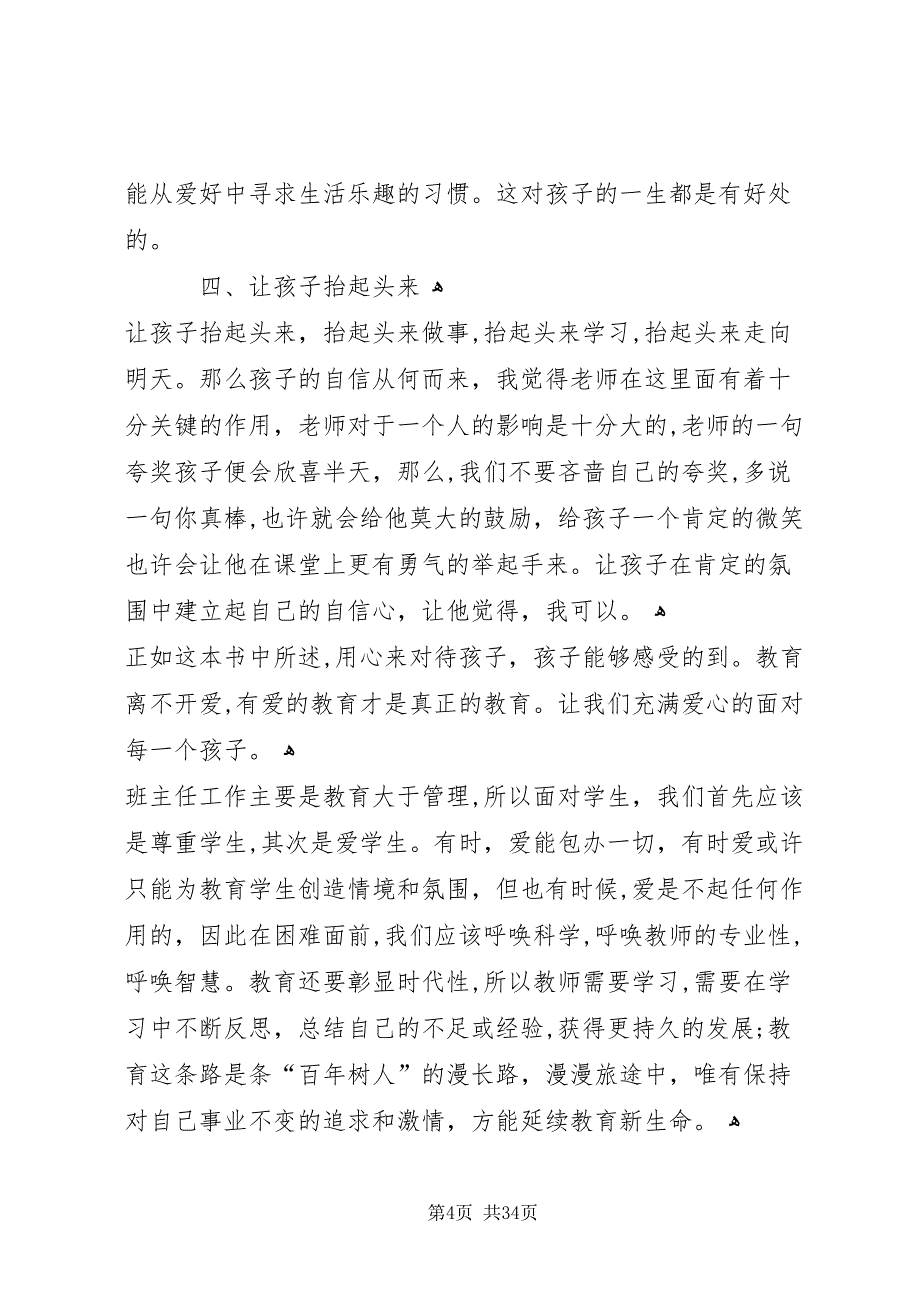 能从爱好中寻求生活乐趣的习惯。这对孩子的一生都是有好处
的。
四、让孩子抬起头来 ﻫ
让孩子抬起头来，抬起头来做事,抬起头来学习,抬起头来走向
明天。那么孩子的自信从何而来，我觉得老师在这里面有着十
分关键的作用，老师对于一个人的影响是十分大的,老师的一句
夸奖孩子便会欣喜半天，那么,我们不要吝啬自己的夸奖,多说
一句你真棒,也许就会给他莫大的鼓励，给孩子一个肯定的微笑
也许会让他在课堂上更有勇气的举起手来。让孩子在肯定的氛
围中建立起自己的自信心，让他觉得，我可以。 ﻫ
正如这本书中所述,用心来对待孩子，孩子能够感受的到。教育
离不开爱,有爱的教育才是真正的教育。让我们充满爱心的面对
每一个孩子。 ﻫ
班主任工作主要是教育大于管理,所以面对学生，我们首先应该
是尊重学生,其次是爱学生。有时，爱能包办一切，有时爱或许
只能为教育学生创造情境和氛围，但也有时候,爱是不起任何作
用的，因此在困难面前,我们应该呼唤科学,呼唤教师的专业性,
呼唤智慧。教育还要彰显时代性,所以教师需要学习,需要在学
习中不断反思，总结自己的不足或经验,获得更持久的发展;教
育这条路是条“百年树人”的漫长路，漫漫旅途中，唯有保持
对自己事业不变的追求和激情，方能延续教育新生命。 ﻫ
第4页 共34页